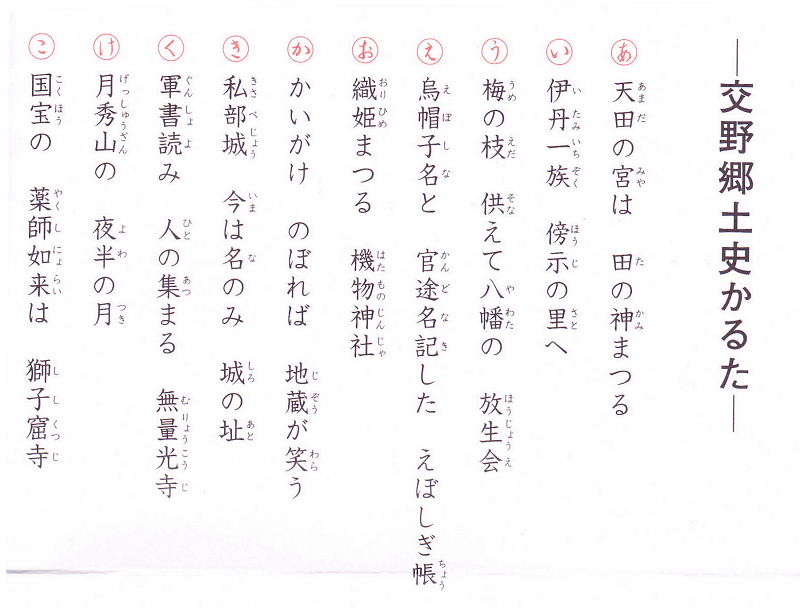 ―交野郷土史かるた―
あ 天田の宮は 田の神まつる
い 伊丹一族 傍示の里へ
う 梅の枝 供えて八幡の 放生会
え 烏帽子名と 官途名記した えぼしぎ帳
お 織姫まつる 機物神社
か かいがけ のぼれば 地蔵が笑う
き 私部城 今は名のみ 城の址
く 軍書読み 人の集まる 無量光寺
け 月秀山の 夜半の月
こ 国宝の 薬師如来は 獅子窟寺